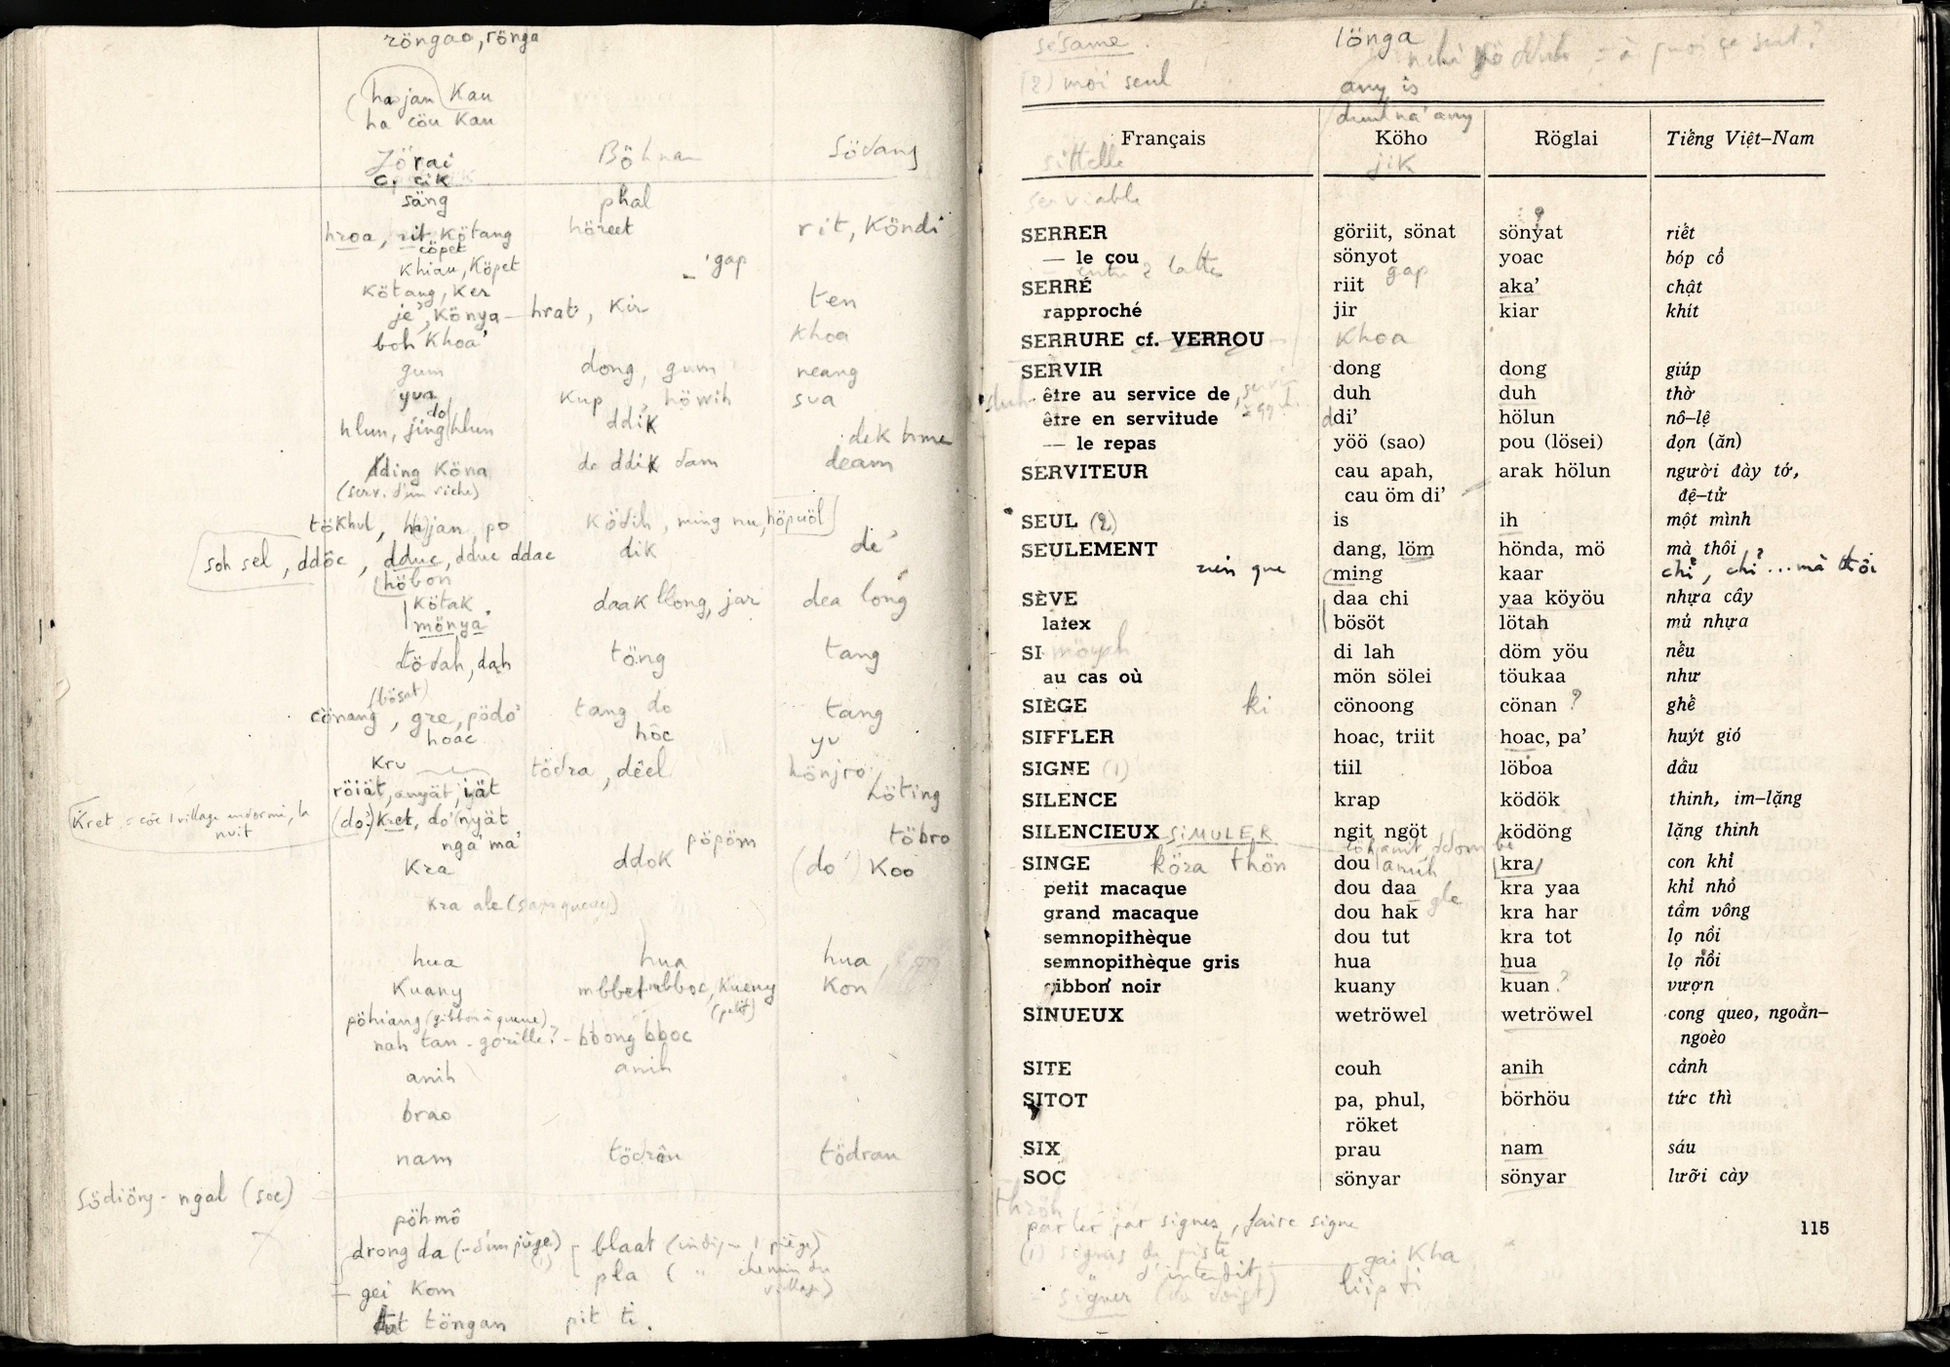 röngao, rönga
hajan Kau
ha cöu Kau
Jörai Böhnar Södang
säng phal
hroa, rit, Kötang höreet rit, Köndi
cöpet
Khiau, Köpet 'gap
Kötang, Ker ten
je', Könya — hrat, Kir
boh Khoa' khoa
gum dong, gum neang
yua Kup, höwih sua
do
hlun, jing hlun ddik dek hme
dding Köna de ddik dam deam
(serv. d'un riche)
tökhul, hajan, po ködih, ming nu, höpuöl
soh sel, ddôc, dduc, dduc ddac dik de'
höbon
kötak daak llong, jar dea long
mönya
tödah, dah töng tang
(bösat)
cönang, gre, pödo' tang do tang
hoac hôc yv
Kru tödra, dêel hönjro
röiät, anyät, iät höting
Kret = côc 1 village endormi, la nuit
(do') Kret, do' nyät
nga' ma' pöpöm töbro
Kra ddok (do') Koo
Kra ale (sans queue)
hua hua hua
Kuany mbbet mbboc, Kueny Kon
(petit)
pöhiang (gibbon à queue)
nah tan - gorille? - bbong bboc
anih anih
brao
nam tödrăn tödrau
södiöng - ngal (soc)
pöhmô
drong da (- d'un piège) blaat (indiq 1 piège)
pla ( " chemin du village)
gei Kom
töngan pit ti.
sésame. lönga
(2) moi seul any is
Français Köho Röglai Tiếng Việt–Nam
sittelle jik
serviable
SERRER göriit, sönat sönyat riết
— le cou sönyot yoac bóp cổ
entre 2 lattes gap
SERRÉ riit aka' chật
rapproché jir kiar khít
SERRURE cf. VERROU Khoa
SERVIR dong dong giúp
être au service de duh duh thờ
être en servitude ddi' hölun nô–lệ
— le repas yöö (sao) pou (lösei) dọn (ăn)
SERVITEUR cau apah, arak hölun người đày tớ,
cau öm di' đệ–tử
SEUL (2) is ih một mình
SEULEMENT dang, löm hönda, mö mà thôi
rien que ming kaar chỉ, chỉ ... mà thôi
SÈVE daa chi yaa köyöu nhựa cây
latex bösöt lötah mủ nhựa
SI möyah di lah döm yöu nếu
au cas où mön sölei töukaa như
SIÈGE ki cönoong cönan ? ghế
SIFFLER hoac, triit hoac, pa' huýt gió
SIGNE (1) tiil löboa dấu
SILENCE krap ködök thinh, im–lặng
SILENCIEUX ngit ngöt ködöng lặng thinh
SIMULER
SINGE köra thön dou kra con khỉ
petit macaque dou daa kra yaa khỉ nhỏ
grand macaque dou hak gle kra har tầm vông
semnopithèque dou tut kra tot lọ nồi
semnopithèque gris hua hua lọ nồi
gibbon noir kuany kuan ? vượn
SINUEUX wetröwel wetröwel cong queo, ngoằn–
ngoèo
SITE couh anih cảnh
SITOT pa, phul, börhöu tức thì
röket
SIX prau nam sáu
SOC sönyar sönyar lưỡi cày
thröh
parler par signes, faire signe
115
(1) signes de piste
d'interdit gai Kha
signer (du doigt) liip ti